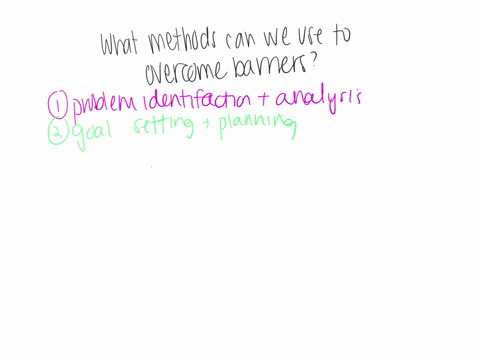 What methods can we use to
overcome barriers?
① problem identifaction + analysis
② goal setting + planning